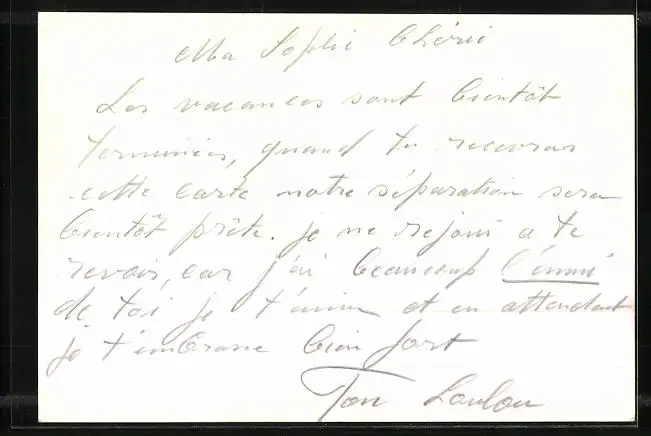 Ma Sophie Chérie
Les vacances sont bientôt
terminées, quand tu recevras
cette carte notre séparation sera
bientôt prête. je me rejoui a te
revoir, car j'ai beaucoup l'ennui
de toi je t'aime et en attendant
je t'embrasse bien fort
Ton Loulou